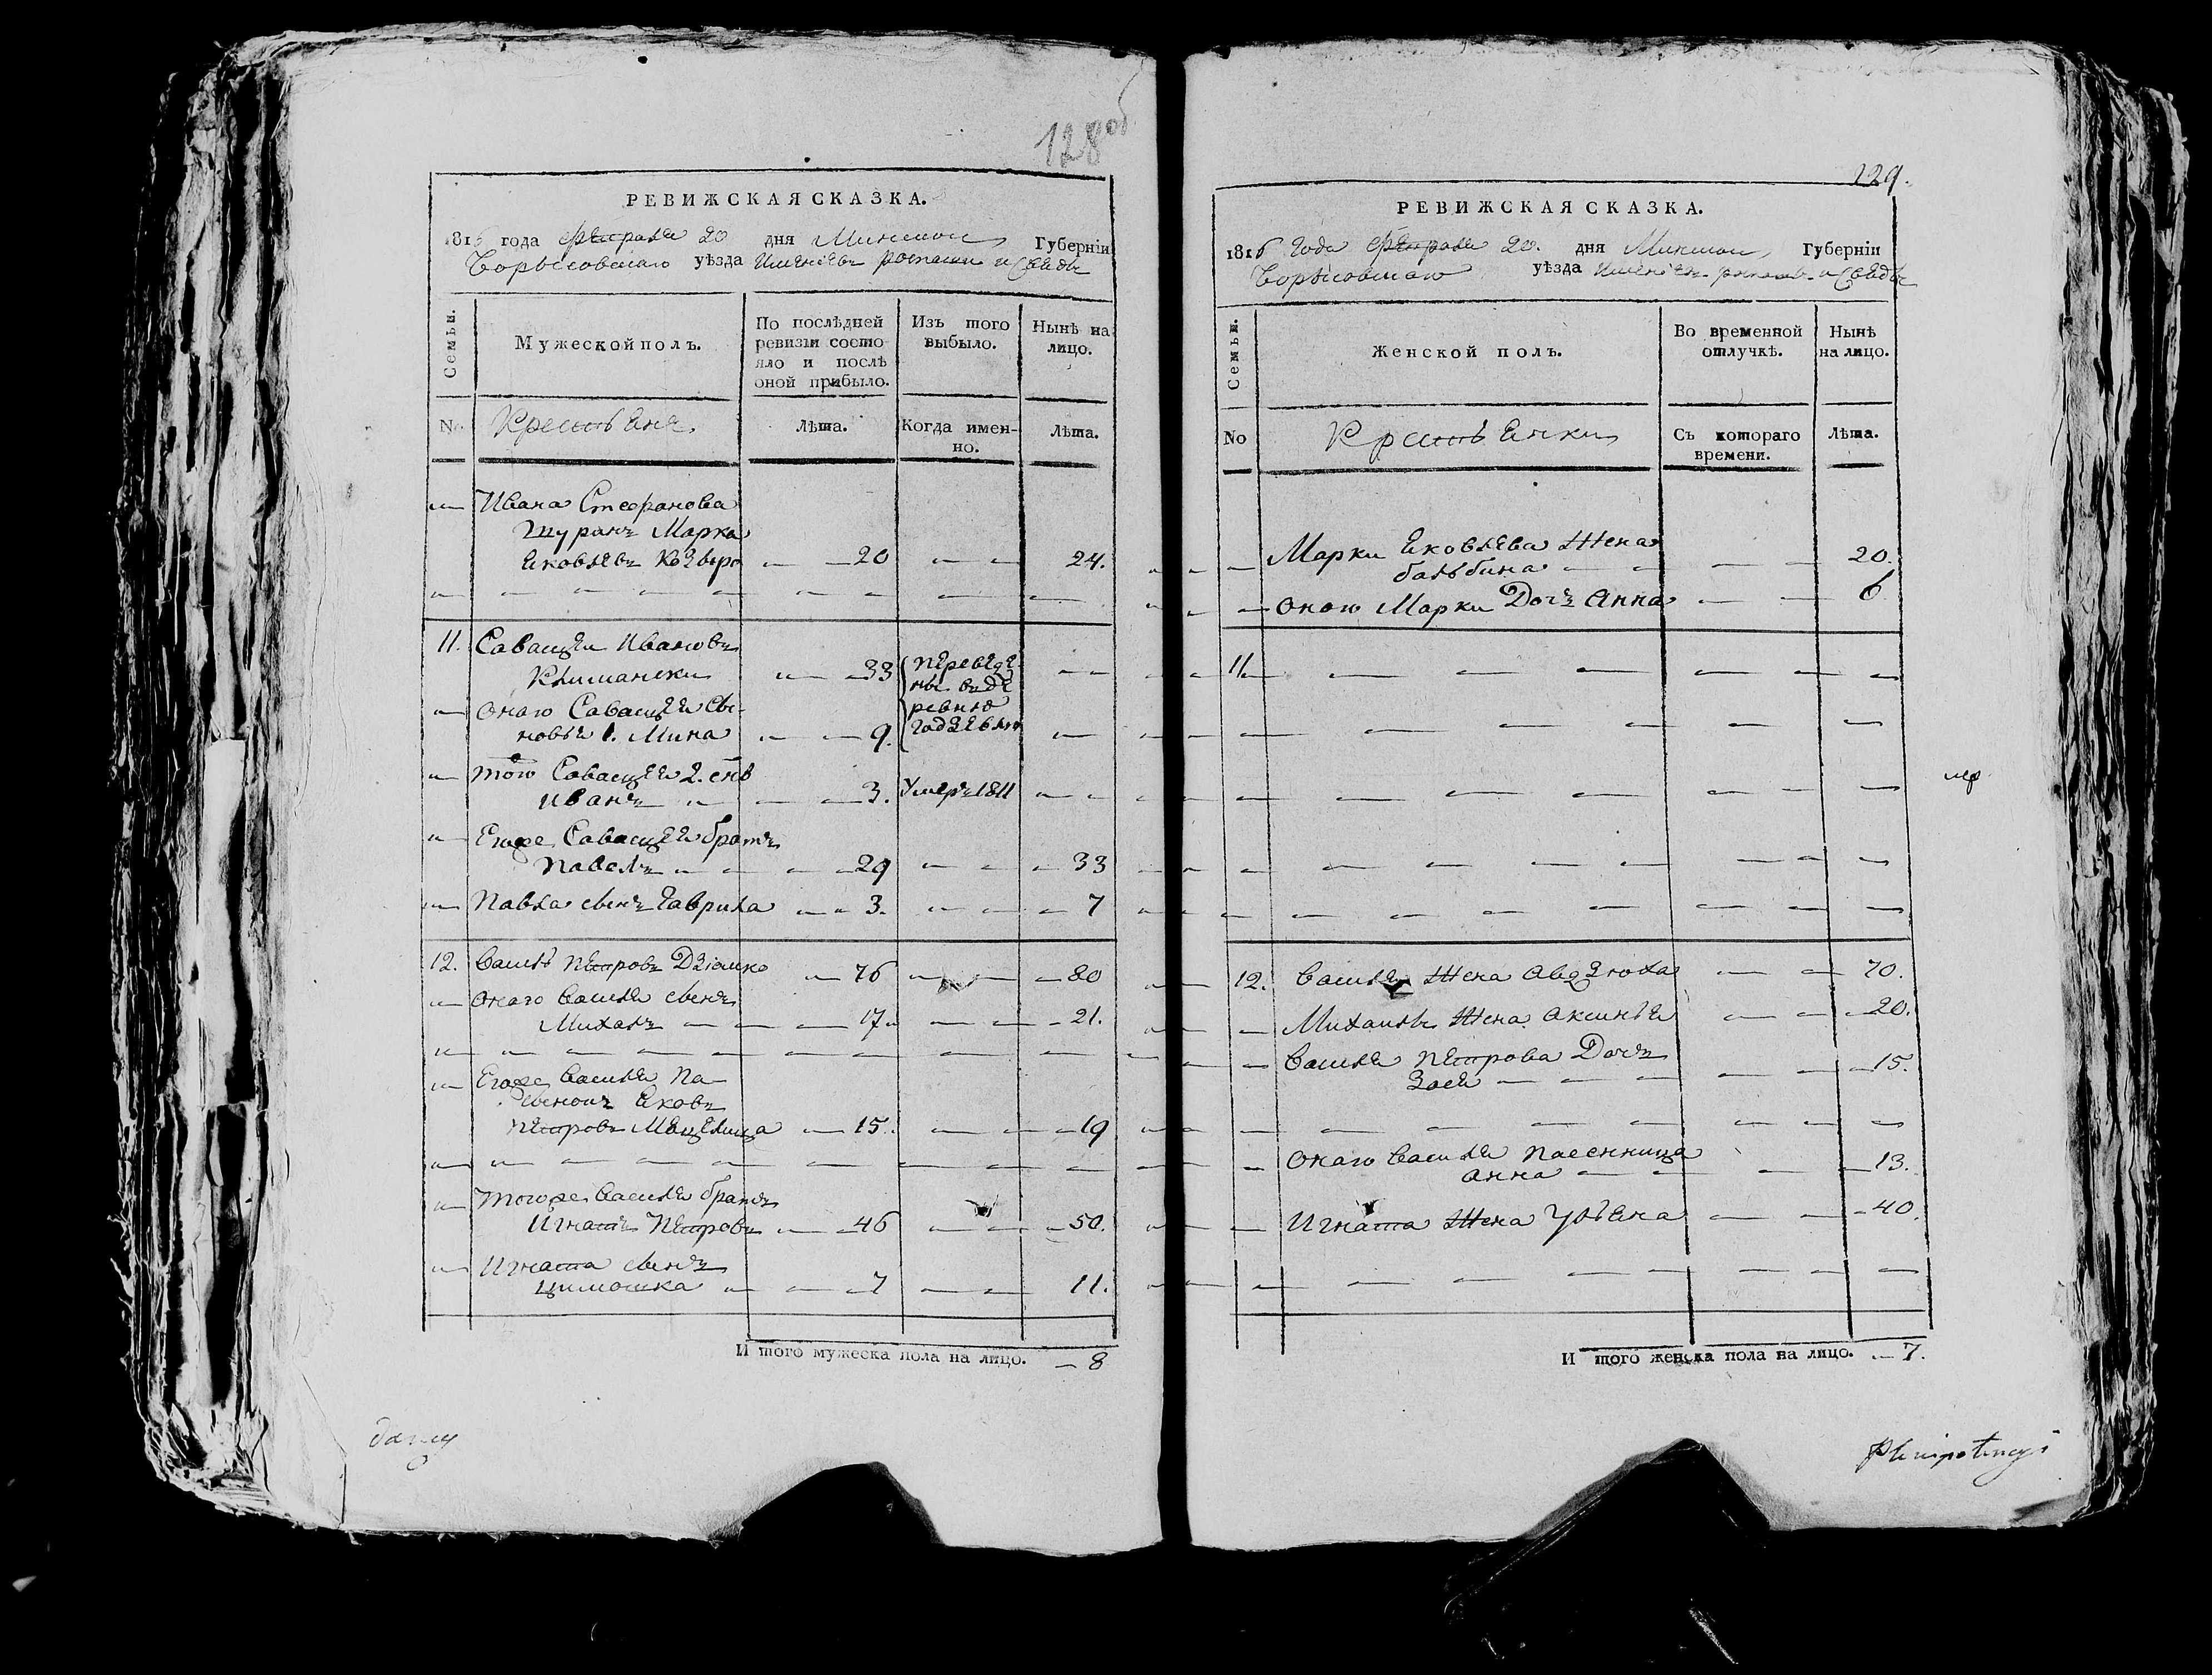 128 об
РЕВИЖСКАЯ СКАЗКА.
1816 года Февраля 20 дня Минской Губерніи
Борысовскаго уѣзда
Семьи.
Мужеской полъ.
По послѣдней ревизіи состояло и послѣ оной прибыло.
Изъ того выбыло.
Нынѣ на лицо.
No
Крестьяне
Лѣта.
Когда именно.
Лѣта.
Ивана Стефанова
шуринъ Марка
20 24.
11. Савацея Ивановъ
33 переведе
ны въ де
онаго Савацея сы- ревню
новья 1. Мина 9.
того Савацея 2. снъ
Иванъ 3. Умеръ 1811
Егоже Савацея братъ
Павелъ 29 33
Павла сынъ Гаврила 3. 7
12. Василь Петровъ 76 80
онаго Василя сынъ
Михалъ 17 21.
Егоже Василя па
сынокъ
Петровъ 15. 19
Тогоже Василя братъ
Игнатъ Петровъ 46 50.
Игната сынъ
Цимошка 7 11.
И того мужеска пола на лицо. 8
129.
РЕВИЖСКАЯ СКАЗКА.
1816 Года Февраля 20. дня Минской Губерніи
Борысовскаго уѣзда
Семьи.
Женской полъ.
Во временной отлучкѣ.
Нынѣ на лицо.
No
Крестьянки
Съ котораго времени.
Лѣта.
Марки Яковлева Жена
20.
оного Марки Дочъ Анна 6
11.
12. Василя Жена Авдзюха 70.
Михаила Жена Аксинья 20.
Василя Петрова Дочъ
15.
онаго Василя пасенница
Анна 13.
Игната Жена Ульяна 40.
И того женска пола на лицо. 7.
Plenipotencyi